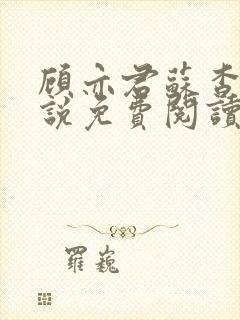 顾亦君蘇杳
說免費閱讀
羅巍